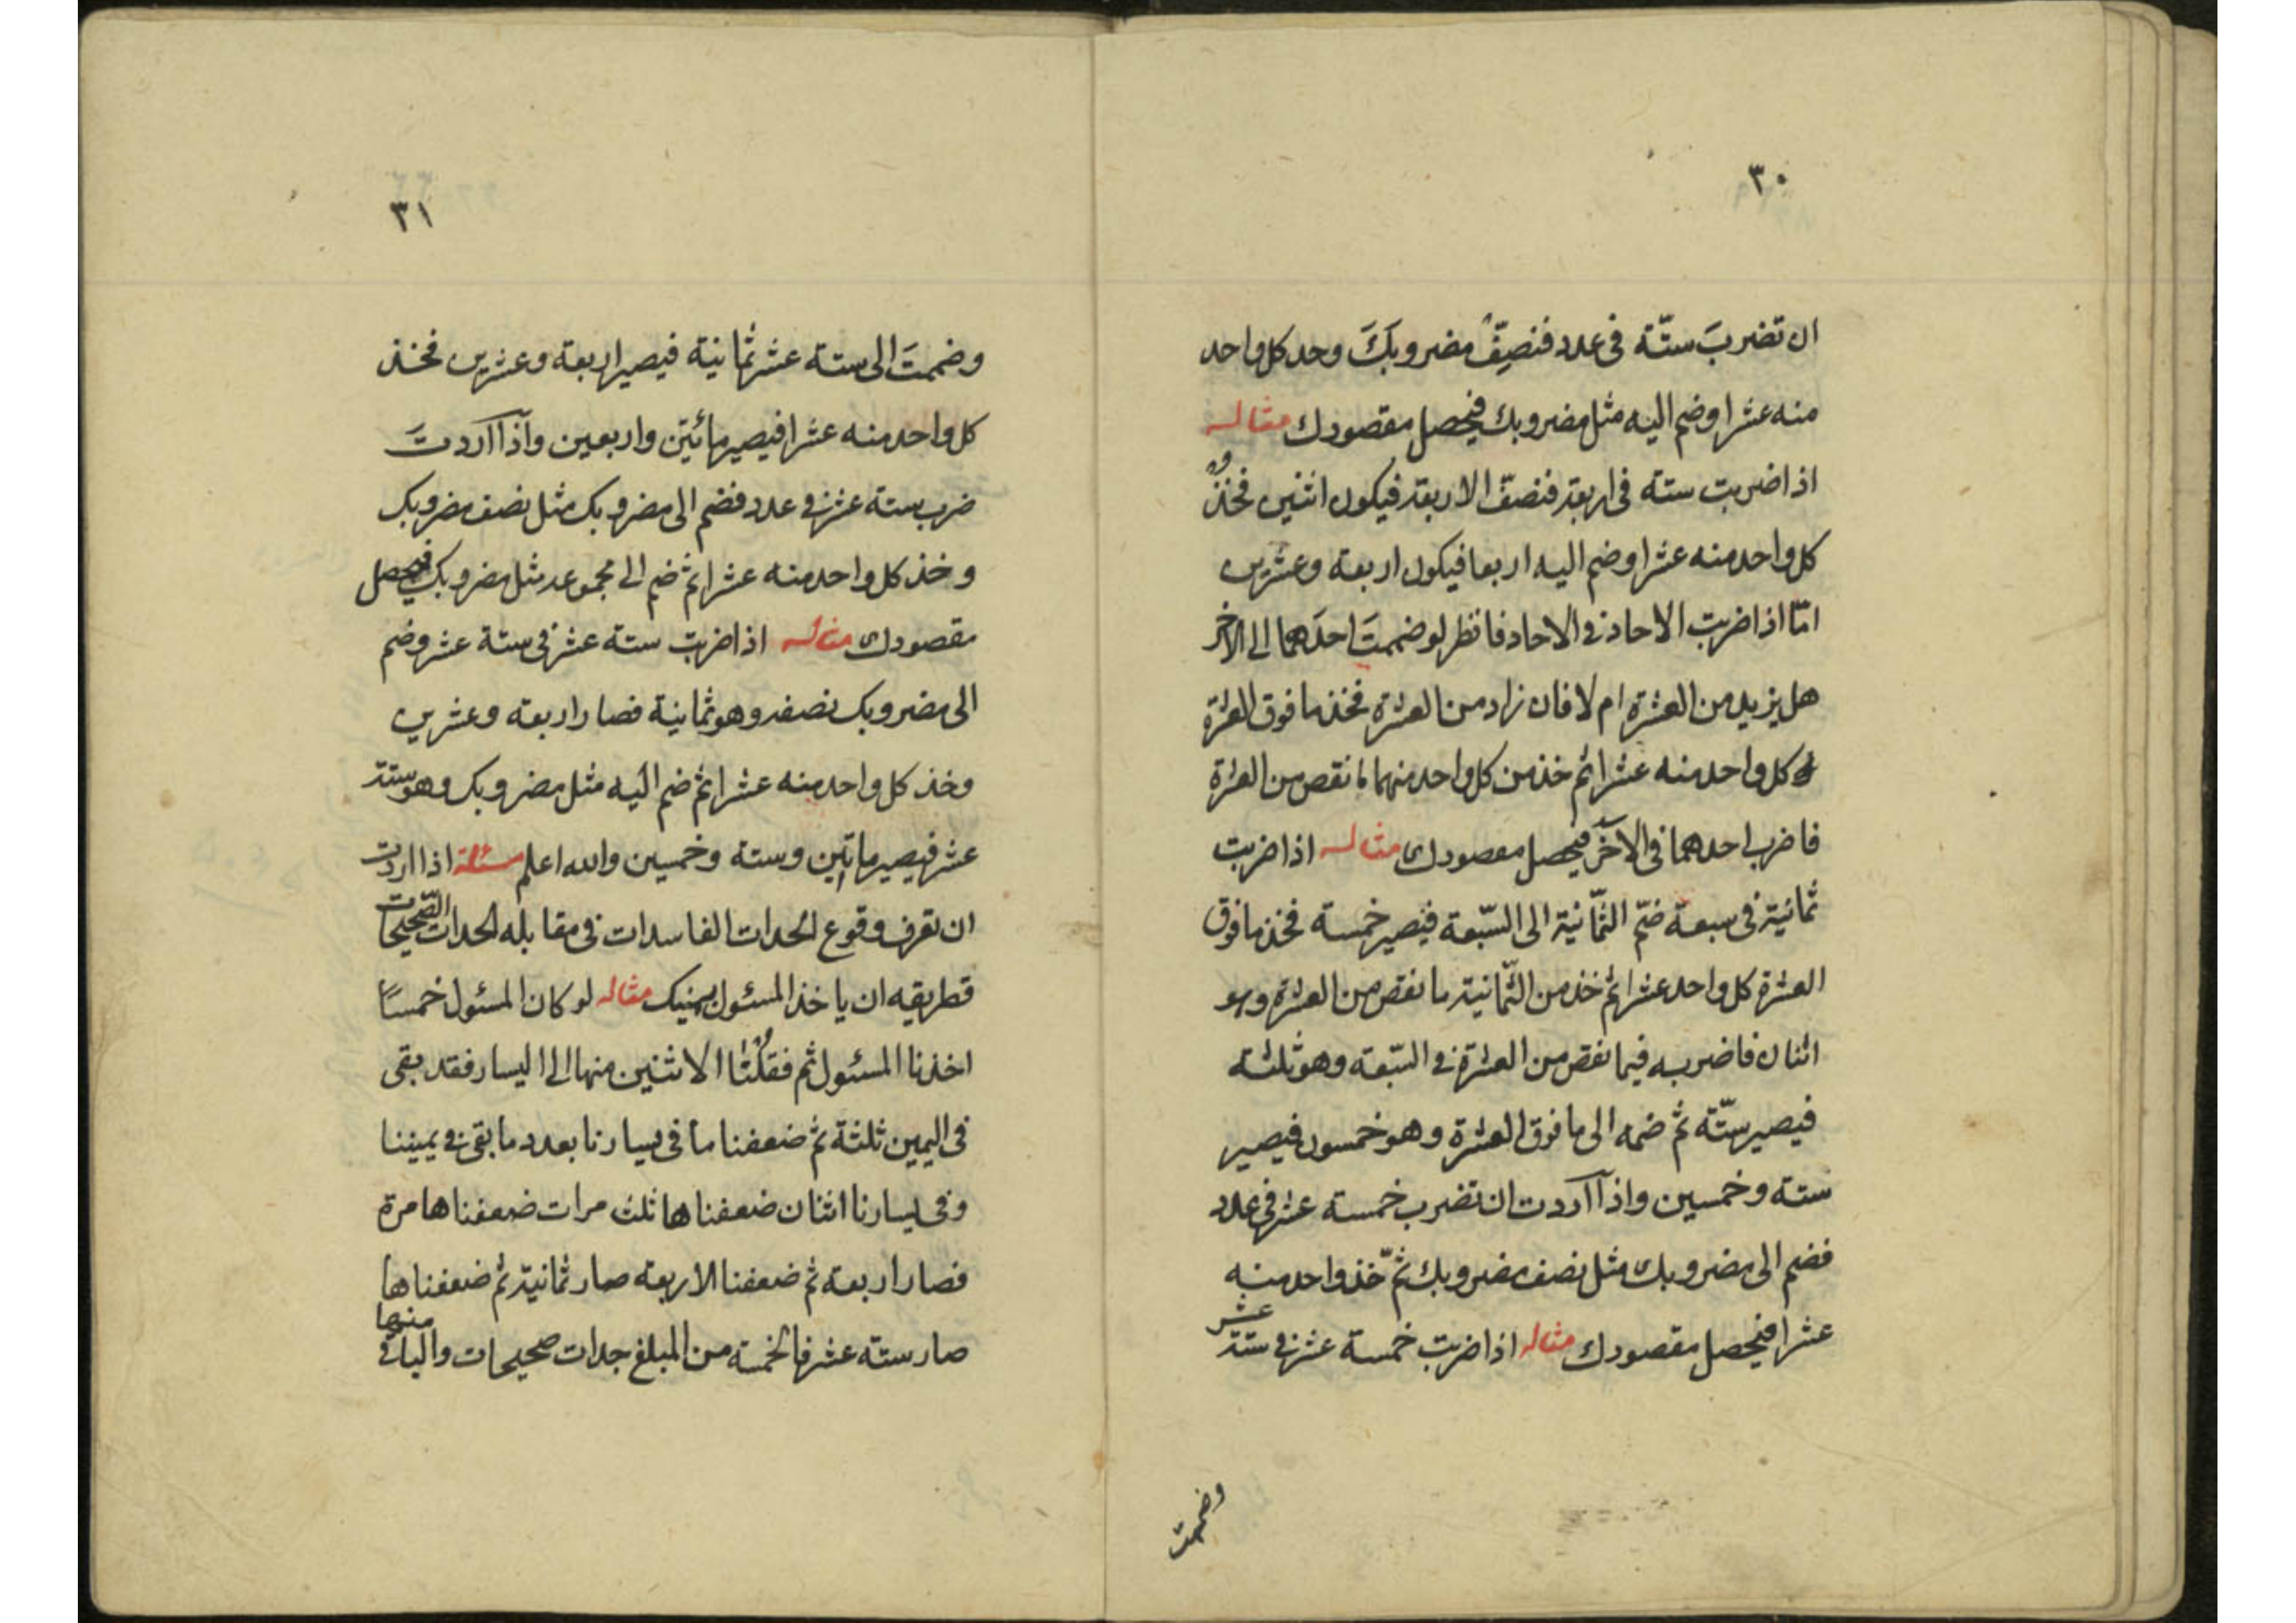 ٣٠
ان تضربَ ستّة فى عدد فنصِّفْ مضروبَكَ وخد كل واحد
منه عشرا وضم اليه مثل مضروبك فيحصل مقصودك مثاله
اذا ضربت ستة فى اربعة فنصفّ الاربعة فيكون اثنين فخذ
كل واحد منه عشرا وضم اليه اربعا فيكون اربعة وعشرين
امّا اذا ضربت الاحاد فى الاحاد فانظر لو ضممتَ احدَهما الى الاخر
هل يزيد من العشرة ام لا فان زاد من العشرة فخذ ما فوق العشرة
كل واحد منه عشرا ثم خذ من كل واحد منهما ما نقص من العشرة
فاضرب احدهما فى الآخر فيحصل مقصودك مثاله اذا ضربت
ثمانية فى سبعة ضمّ الثمّانية الى السّبعة فيصير خمسة فخذ ما فوق
العشرة كل واحد عشرا ثم خذ من الثمّانية ما نقص من العشرة وهو
اثنان فاضربه فيما نقص من العشرة فى السّبعة وهو ثلثة
فيصير ستّة ثم ضمه الى ما فوق العشرة وهو خمسون فيصير
ستة وخمسين واذا آردت ان تضرب خمسة عشر فى عدد
فضم الى مضروبك مثل نصف مضروبك ثمّ خذ واحد منه
عشرا فيحصل مقصودك مثاله اذا ضربت خمسة عشر فى ستة عشر
وضممت
٣١
وضممتَ الى ستة عشر ثمانية فيصير اربعة وعشرين فخذ
كل واحد منه عشرا فيصير مائتين واربعين وآذا آردتَ
ضرب ستة عشر فى عدد فضم الى مضروبك مثل نصف مضروبك
وخذ كل واحد منه عشرا ثم ضم الى مجموعه مثل مضروبك فيحصل
مقصودك مثاله اذا ضربت ستة عشر فى ستة عشر وضم
الى مضروبك نصفه وهو ثمانية فصار اربعة وعشرين
وخذ كل واحد منه عشرا ثم ضم اليه مثل مضروبك وهو ستة
عشر فيصير ماتين وستة وخمسين والله اعلم مسئلة اذا اردت
ان تعرف وقوع الجدات الفاسدات فى مقابله الجدات الصّحيحات
فطريقه ان ياخذ المسئول بيمينك مثاله لو كان المسئول خمسًا
اخذنا المسئول ثم فقلنا الاثنين منها الى اليسار فقد بقى
فى اليمين ثلثة ثم ضعفنا ما فى يسارنا بعدد ما بقى فى يميننا
وفى يسارنا اثنان ضعفناها ثلث مرات ضعفناها مرة
فصار اربعة ثم ضعفنا الاربعة صار ثمانية ثم ضعفناها
صار ستة عشر فالخمسة من المبلغ جدات صحيحات والباقى منها